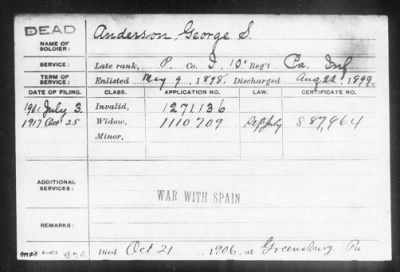 DEAD
NAME OF SOLDIER: Anderson, George S.
SERVICE: Late rank, P. Co. I, 10" Reg't Pa. Inf
TERM OF SERVICE: Enlisted May 9, 1898, Discharged Aug 22, 1899
DATE OF FILING. CLASS. APPLICATION NO. LAW. CERTIFICATE NO.
1901 July 3. Invalid, 1271136
1917 Oct 25 Widow, 1110709 July 887,964
Minor,
ADDITIONAL SERVICES:
WAR WITH SPAIN
REMARKS:
Died Oct 21 1906, at Greensburg, Pa